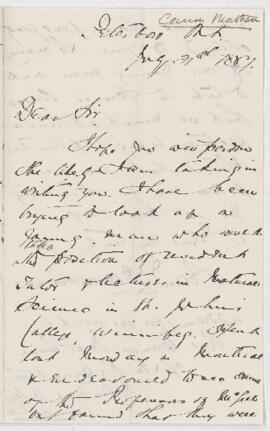 Canon Matheson
Peterboro' Ont.
July 27th 1887.
Dear Sir
I hope you will pardon
the liberty I am taking in
writing you. I have been
trying to look up a
young man who would
take
the position of resident
Tutor & lecturer in Natural
Science in St. John's
College, Winnipeg. I spent
last Monday in Montreal
& endeavoured to see some
of the Professors of McGill
but found that they were